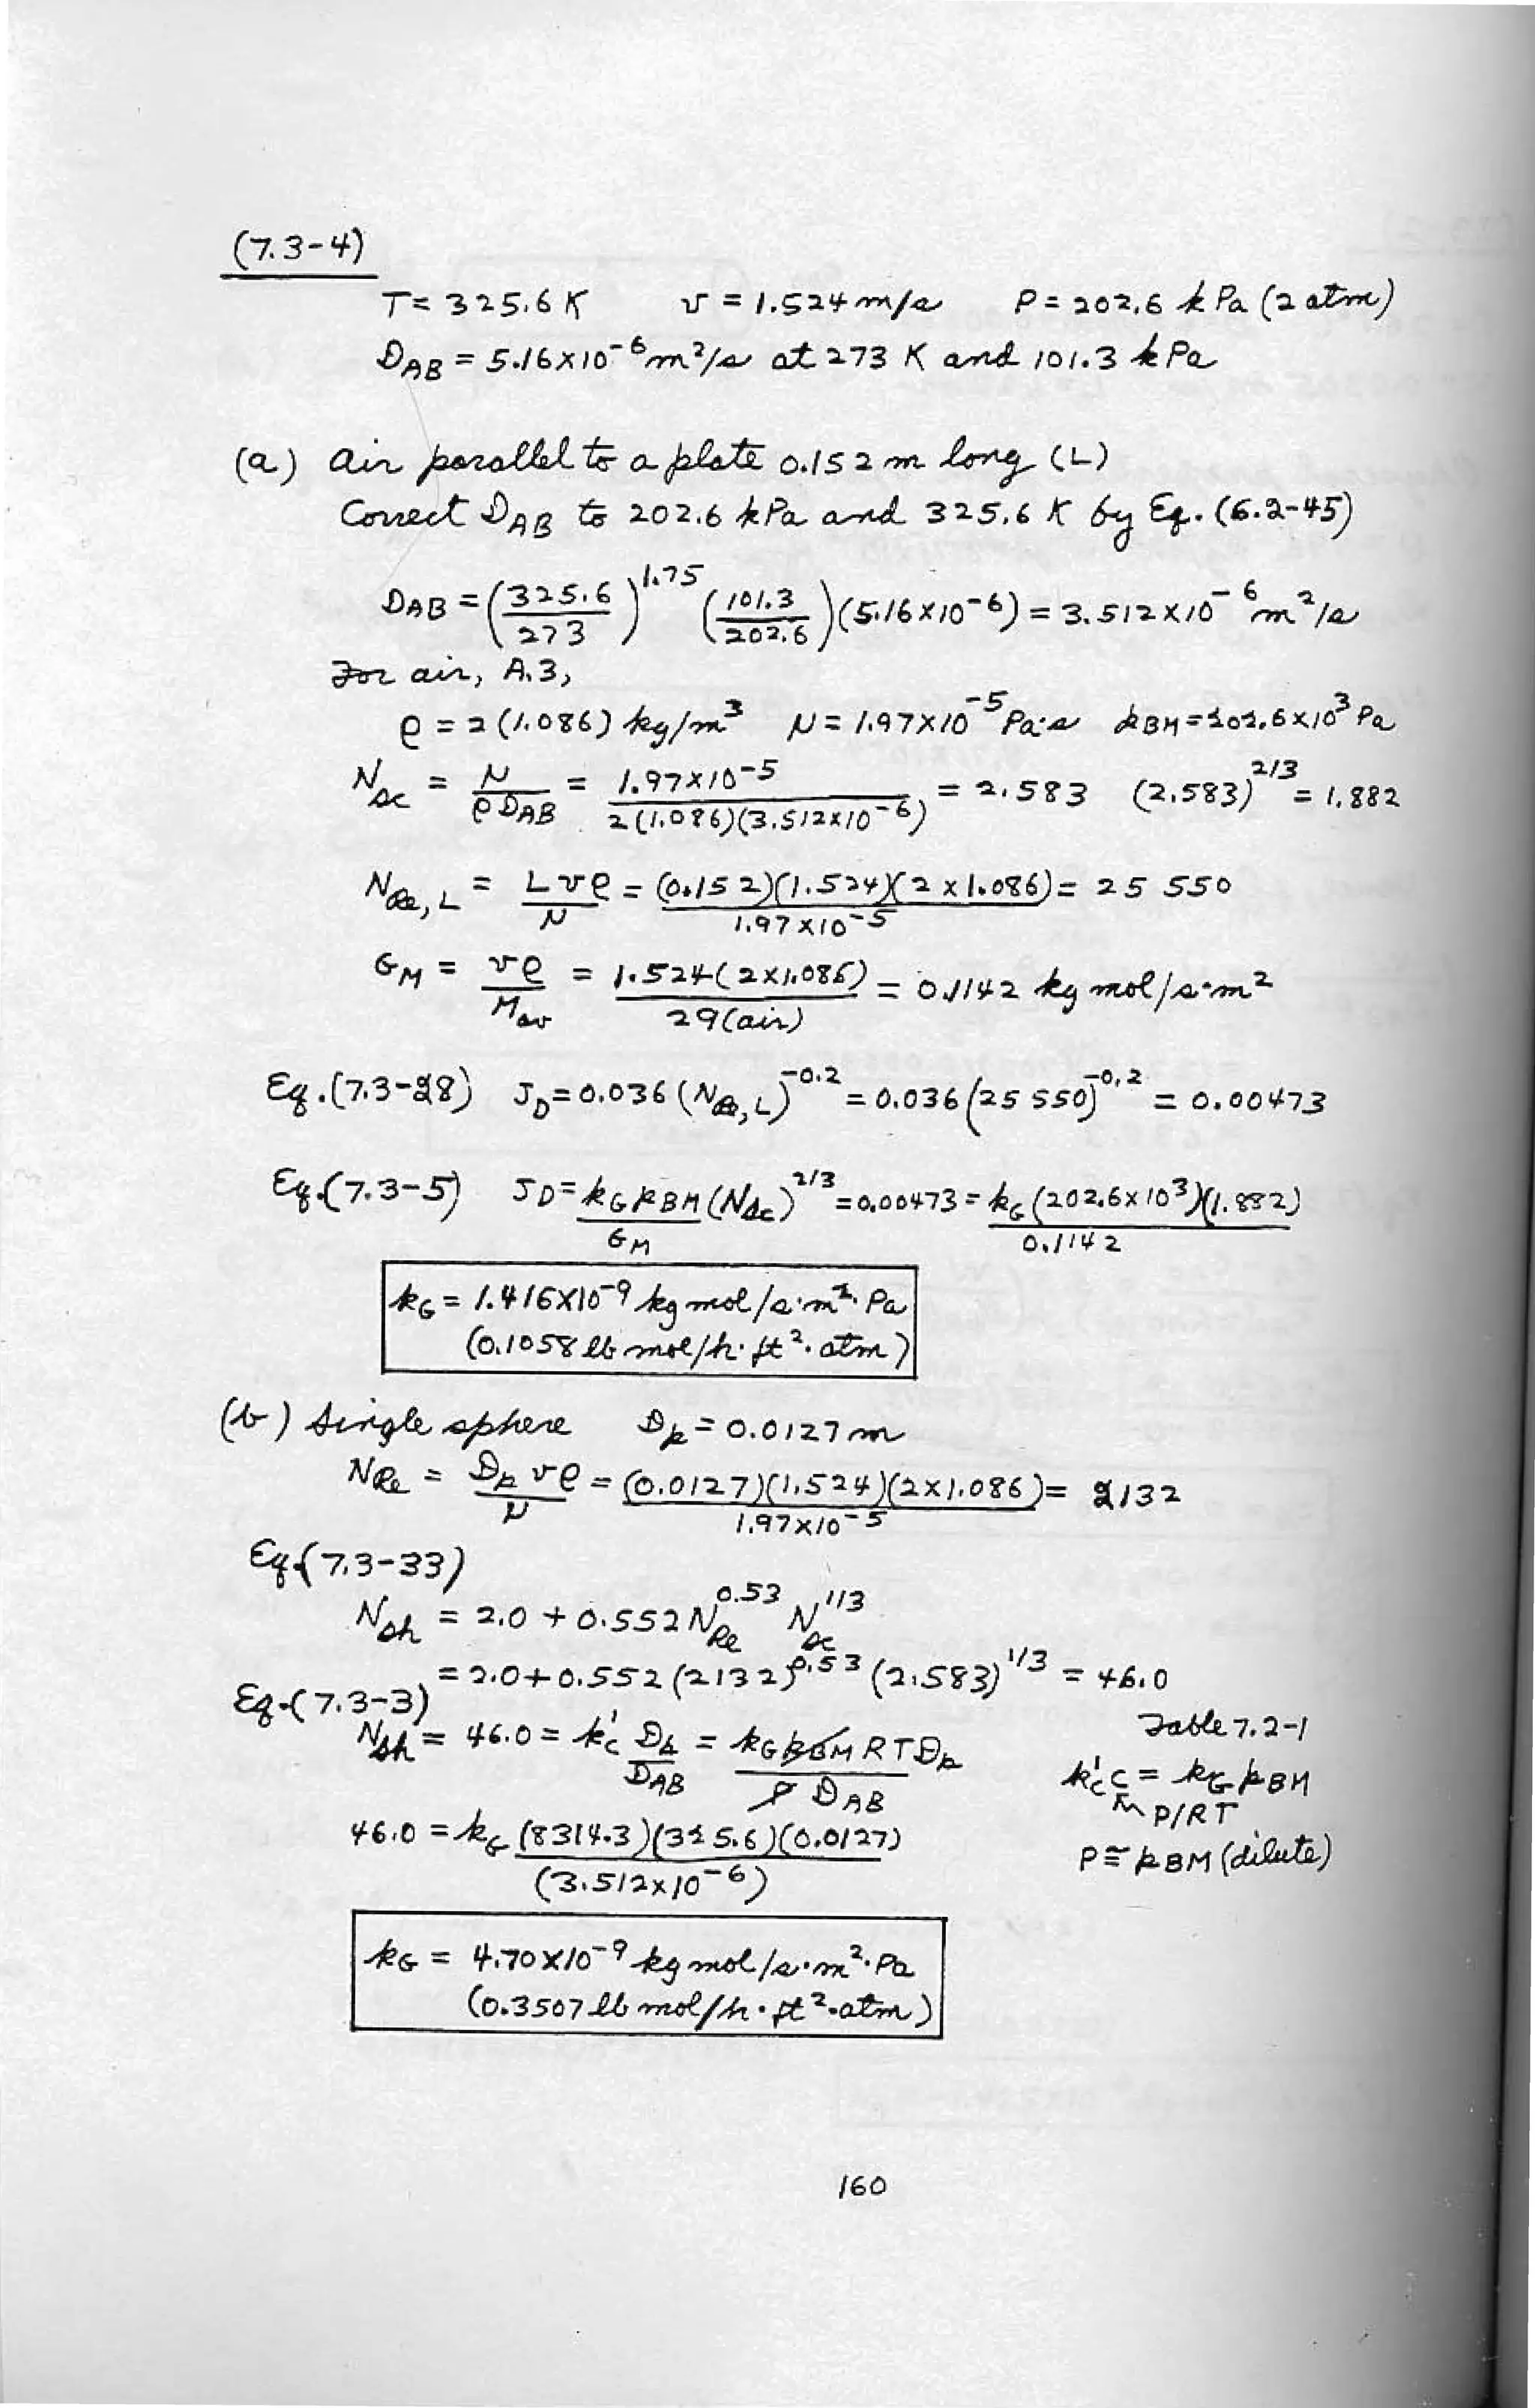 (7.3-4)
T = 325.6 K v = 1.524 m/s P = 202.6 kPa (2 atm)
D_AB = 5.16×10^-6 m^2/s at 273 K and 101.3 kPa
(a) Air parallel to a plate 0.152 m long (L)
Correct D_AB to 202.6 kPa and 325.6 K by Eq. (6.2-45)
D_AB = (325.6/273)^1.75 (101.3/202.6)(5.16×10^-6) = 3.512×10^-6 m^2/s
For air, A.3,
ρ = 2(1.086) kg/m^3 μ = 1.97×10^-5 Pa·s p_BM = 202.6×10^3 Pa
N_Sc = μ/ρD_AB = 1.97×10^-5/2(1.086)(3.512×10^-6) = 2.583 (2.583)^2/3 = 1.882
N_Re,L = Lvρ/μ = (0.152)(1.524)(2×1.086)/1.97×10^-5 = 25 550
G_M = vρ/M_av = 1.524(2×1.086)/29(air) = 0.1142 kg mol/s·m^2
Eq.(7.3-28) J_D = 0.036(N_Re,L)^-0.2 = 0.036(25 550)^-0.2 = 0.00473
Eq.(7.3-5) J_D = k_G p_BM/G_M (N_Sc)^2/3 = 0.00473 = k_G(202.6×10^3)(1.882)/0.1142
k_G = 1.416×10^-9 kg mol/s·m^2·Pa
(0.1058 lb mol/h·ft^2·atm)
(b) Single sphere D_p = 0.0127 m
N_Re = D_p vρ/μ = (0.0127)(1.524)(2×1.086)/1.97×10^-5 = 2132
Eq.(7.3-33)
N_Sh = 2.0 + 0.552 N_Re^0.53 N_Sc^1/3
= 2.0 + 0.552(2132)^0.53 (2.583)^1/3 = 46.0
Eq.(7.3-3)
N_Sh = 46.0 = k'_c D_p/D_AB = k_G p_BM RTD_p/P D_AB
Table 7.2-1
k'_c c = k_G p_BM
P/RT
P ≅ p_BM (dilute)
46.0 = k_G (8314.3)(325.6)(0.0127)/(3.512×10^-6)
k_G = 4.70×10^-9 kg mol/s·m^2·Pa
(0.3507 lb mol/h·ft^2·atm)
160